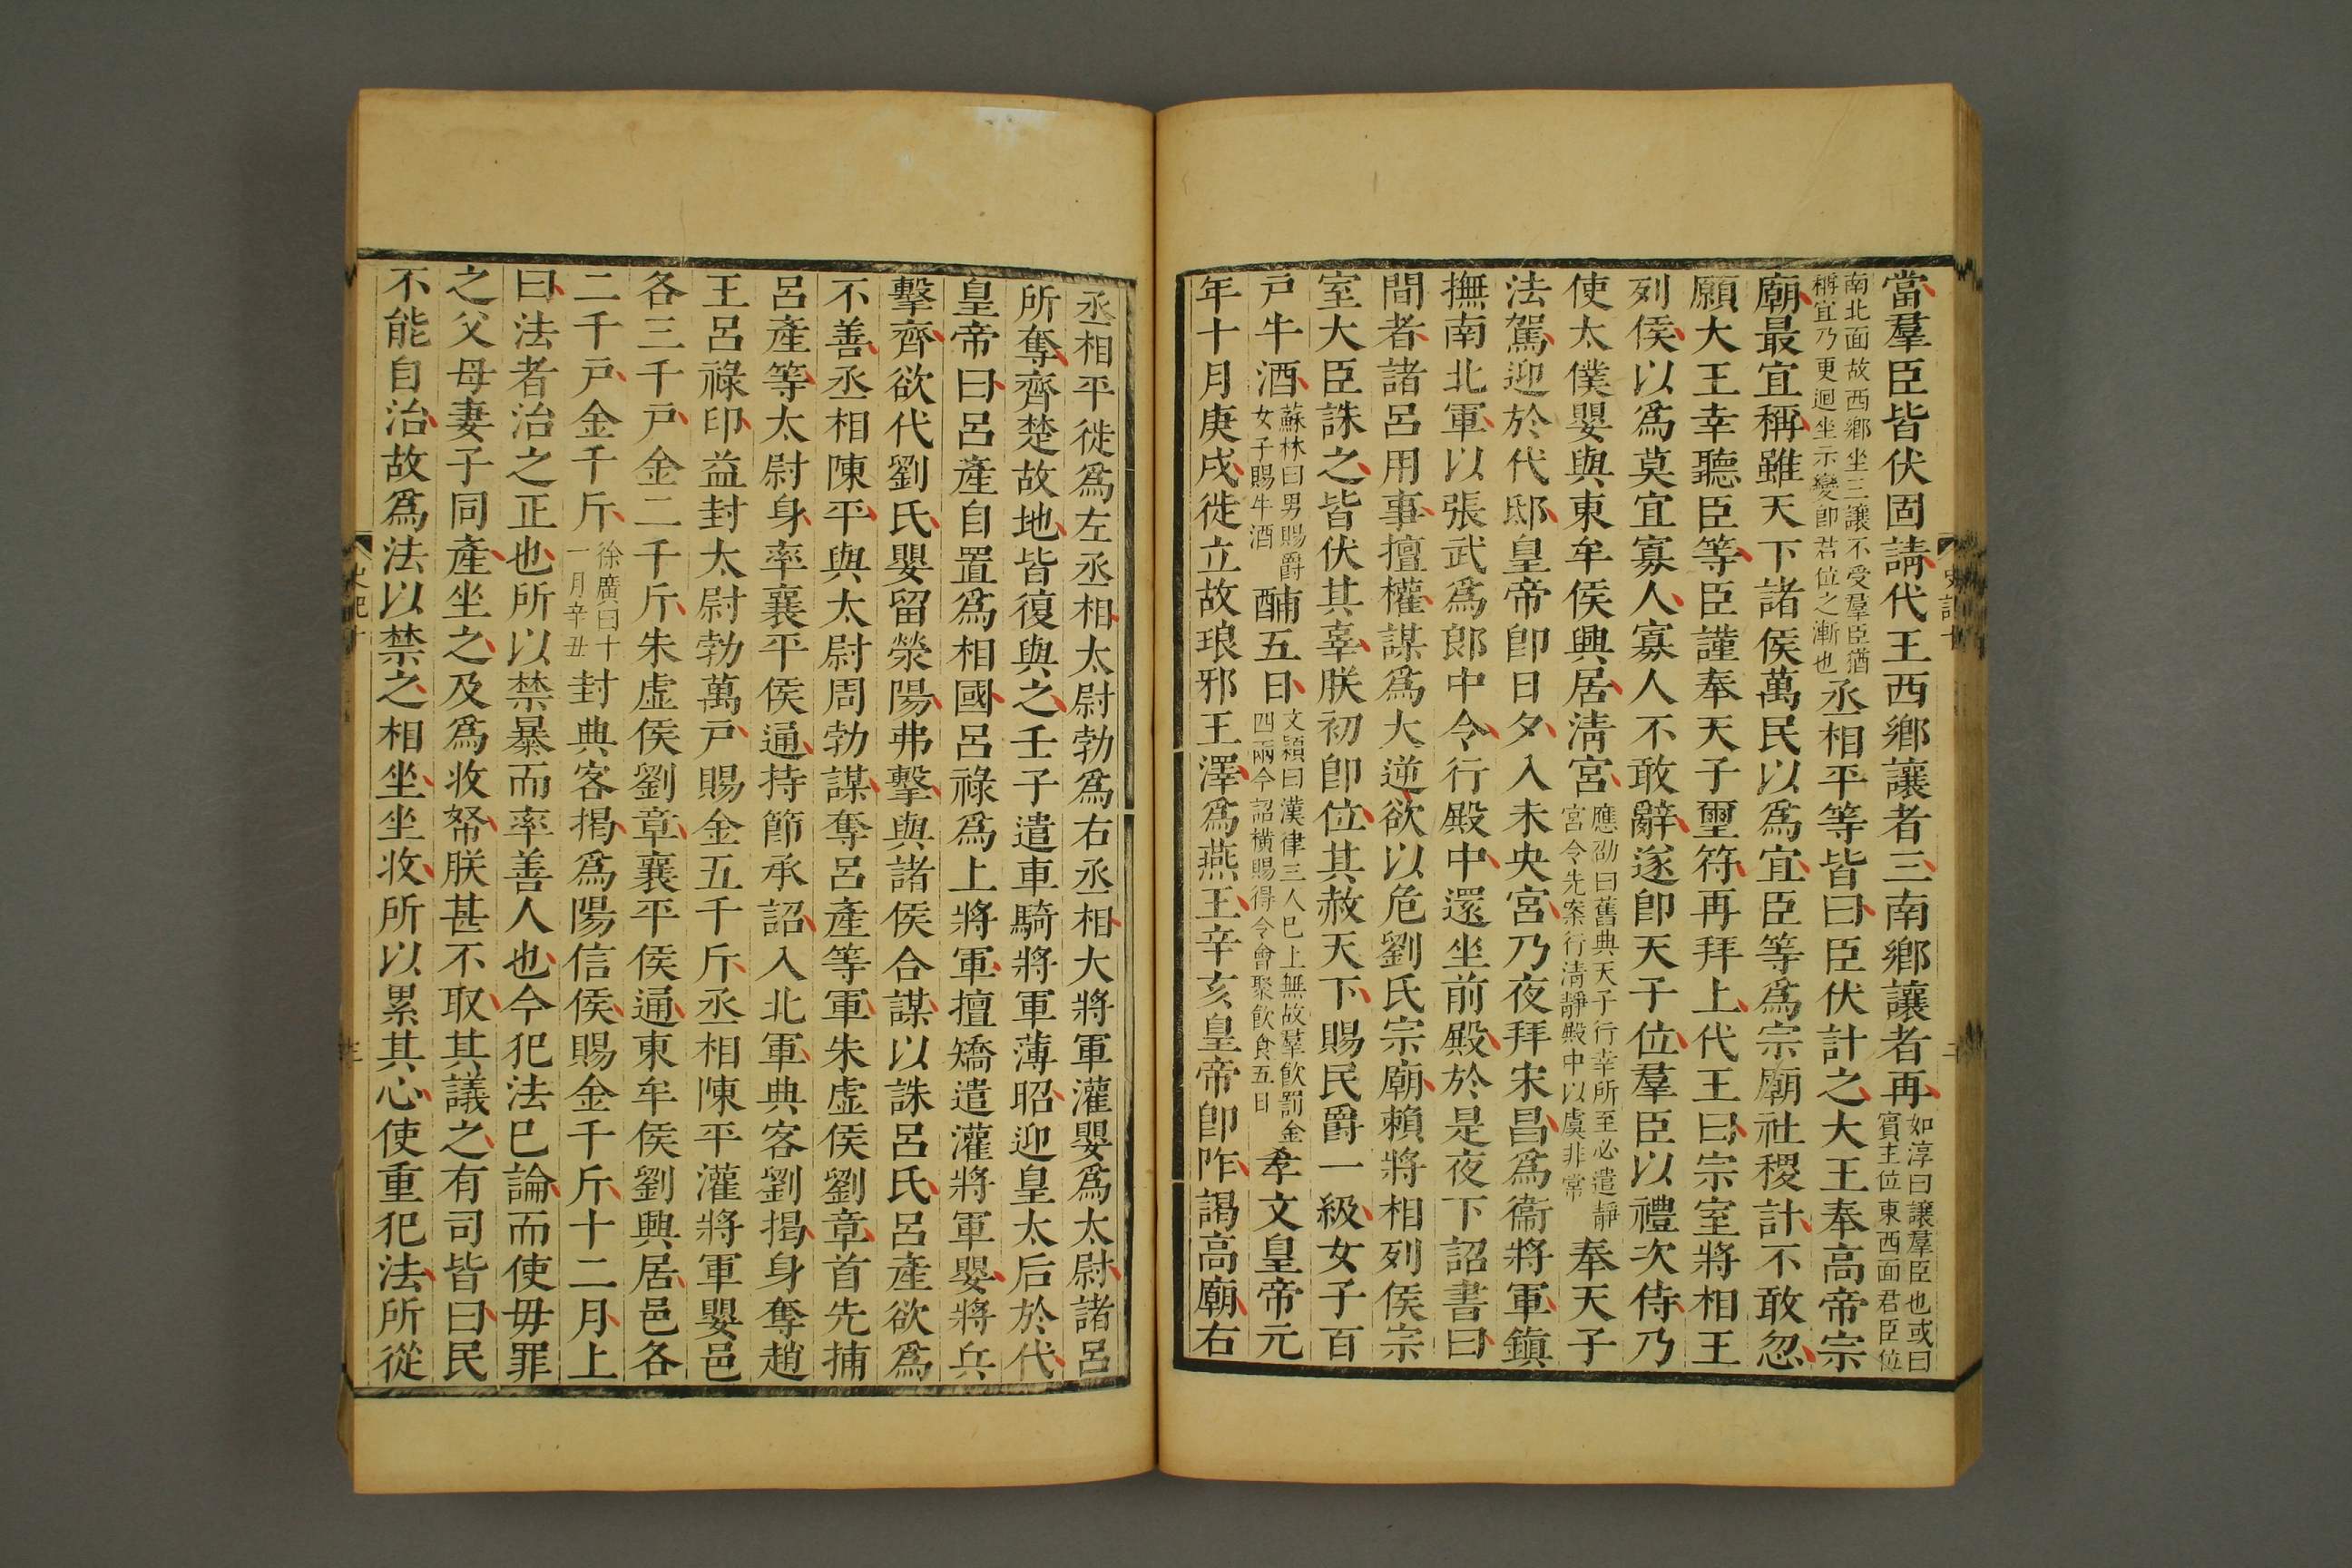 當羣臣皆伏固請代王西鄉讓者三南鄉讓者再如淳曰讓羣臣也或曰賓主位東西面君臣位
南北面故西鄉坐三讓不受羣臣猶稱宜乃更迴坐示變卽君位之漸也丞相平等皆曰臣伏計之大王奉高帝宗
廟最宜稱雖天下諸侯萬民以爲宜臣等爲宗廟社稷計不敢忽
願大王幸聽臣等臣謹奉天子璽符再拜上代王曰宗室將相王
列侯以爲莫宜寡人寡人不敢辭遂卽天子位羣臣以禮次侍乃
使太僕嬰與東牟侯興居淸宮應劭曰舊典天子行幸所至必遣靜宮令先案行淸靜殿中以虞非常奉天子
法駕迎於代邸皇帝卽日夕入未央宮乃夜拜宋昌爲衞將軍鎭
撫南北軍以張武爲郞中令行殿中還坐前殿於是夜下詔書曰
間者諸呂用事擅權謀爲大逆欲以危劉氏宗廟賴將相列侯宗
室大臣誅之皆伏其辜朕初卽位其赦天下賜民爵一級女子百
戸牛酒蘇林曰男賜爵女子賜牛酒酺五日文穎曰漢律三人巳上無故羣飮罰金四兩今詔橫賜得令會聚飮食五日孝文皇帝元
年十月庚戌徙立故琅邪王澤爲燕王辛亥皇帝卽阼謁高廟右
丞相平徙爲左丞相太尉勃爲右丞相大將軍灌嬰爲太尉諸呂
所奪齊楚故地皆復與之壬子遣車騎將軍薄昭迎皇太后於代
皇帝曰呂產自置爲相國呂祿爲上將軍擅矯遣灌將軍嬰將兵
擊齊欲代劉氏嬰留滎陽弗擊與諸侯合謀以誅呂氏呂產欲爲
不善丞相陳平與太尉周勃謀奪呂產等軍朱虛侯劉章首先捕
呂產等太尉身率襄平侯通持節承詔入北軍典客劉揭身奪趙
王呂祿印益封太尉勃萬戸賜金五千斤丞相陳平灌將軍嬰邑
各三千戸金二千斤朱虛侯劉章襄平侯通東牟侯劉興居邑各
二千戸金千斤徐廣曰十一月辛丑封典客揭爲陽信侯賜金千斤十二月上
曰法者治之正也所以禁暴而率善人也今犯法巳論而使毋罪
之父母妻子同產坐之及爲收帑朕甚不取其議之有司皆曰民
不能自治故爲法以禁之相坐坐收所以累其心使重犯法所從